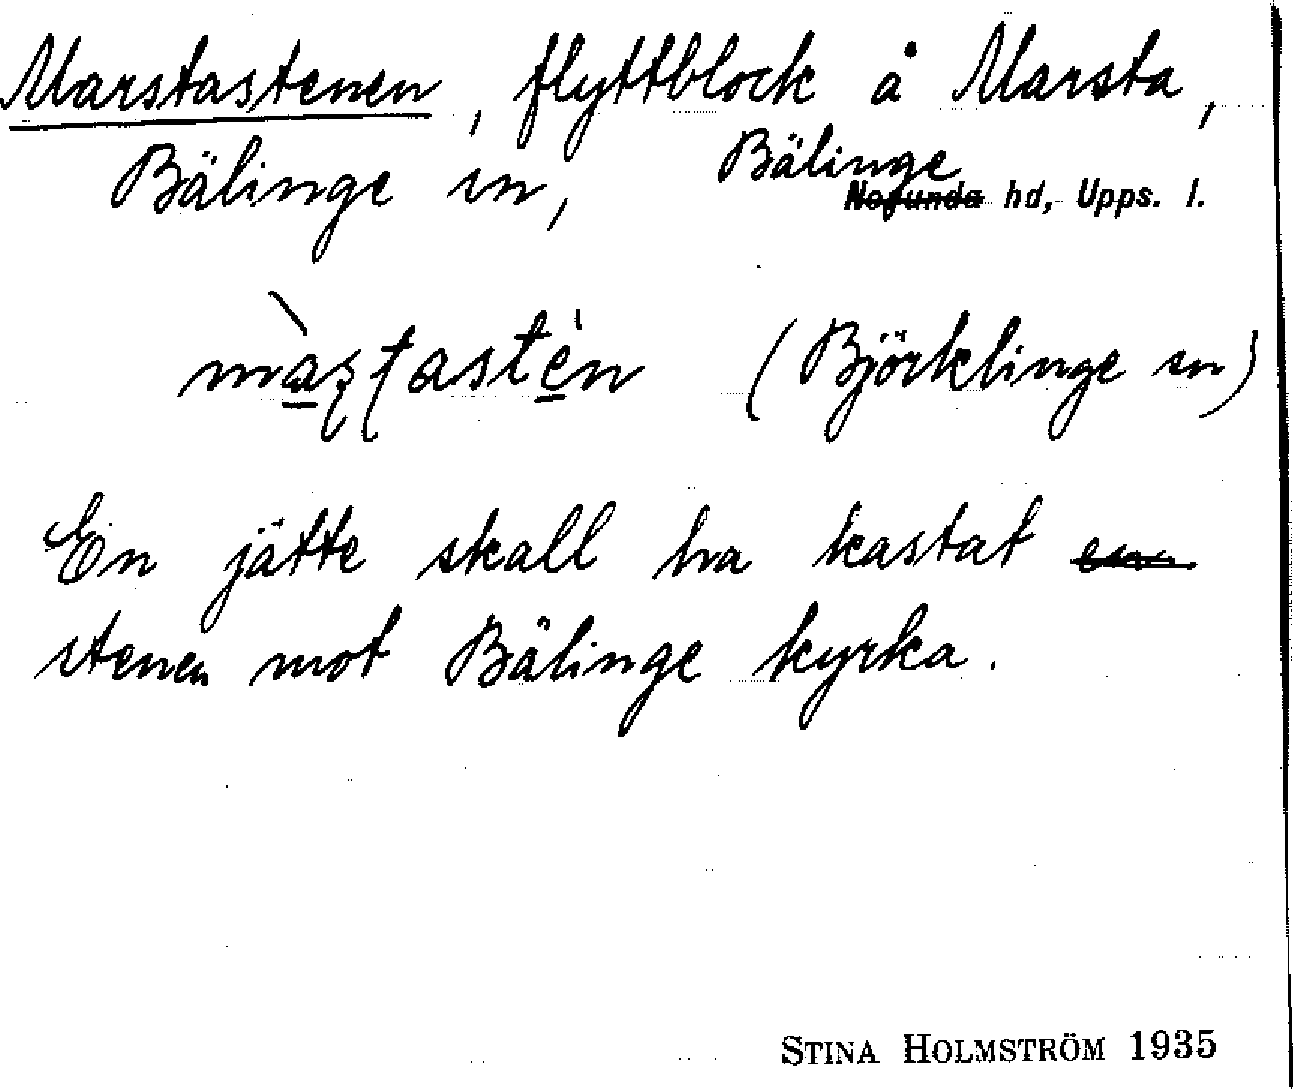 Marstastenen, flyttblock å Marsta,
Bälinge sn, Bälinge
Norunda hd, Upps. l.
(Björklinge sn)
En jätte skall ha kastat en
stenen mot Bälinge kyrka.
STINA HOLMSTRÖM 1935